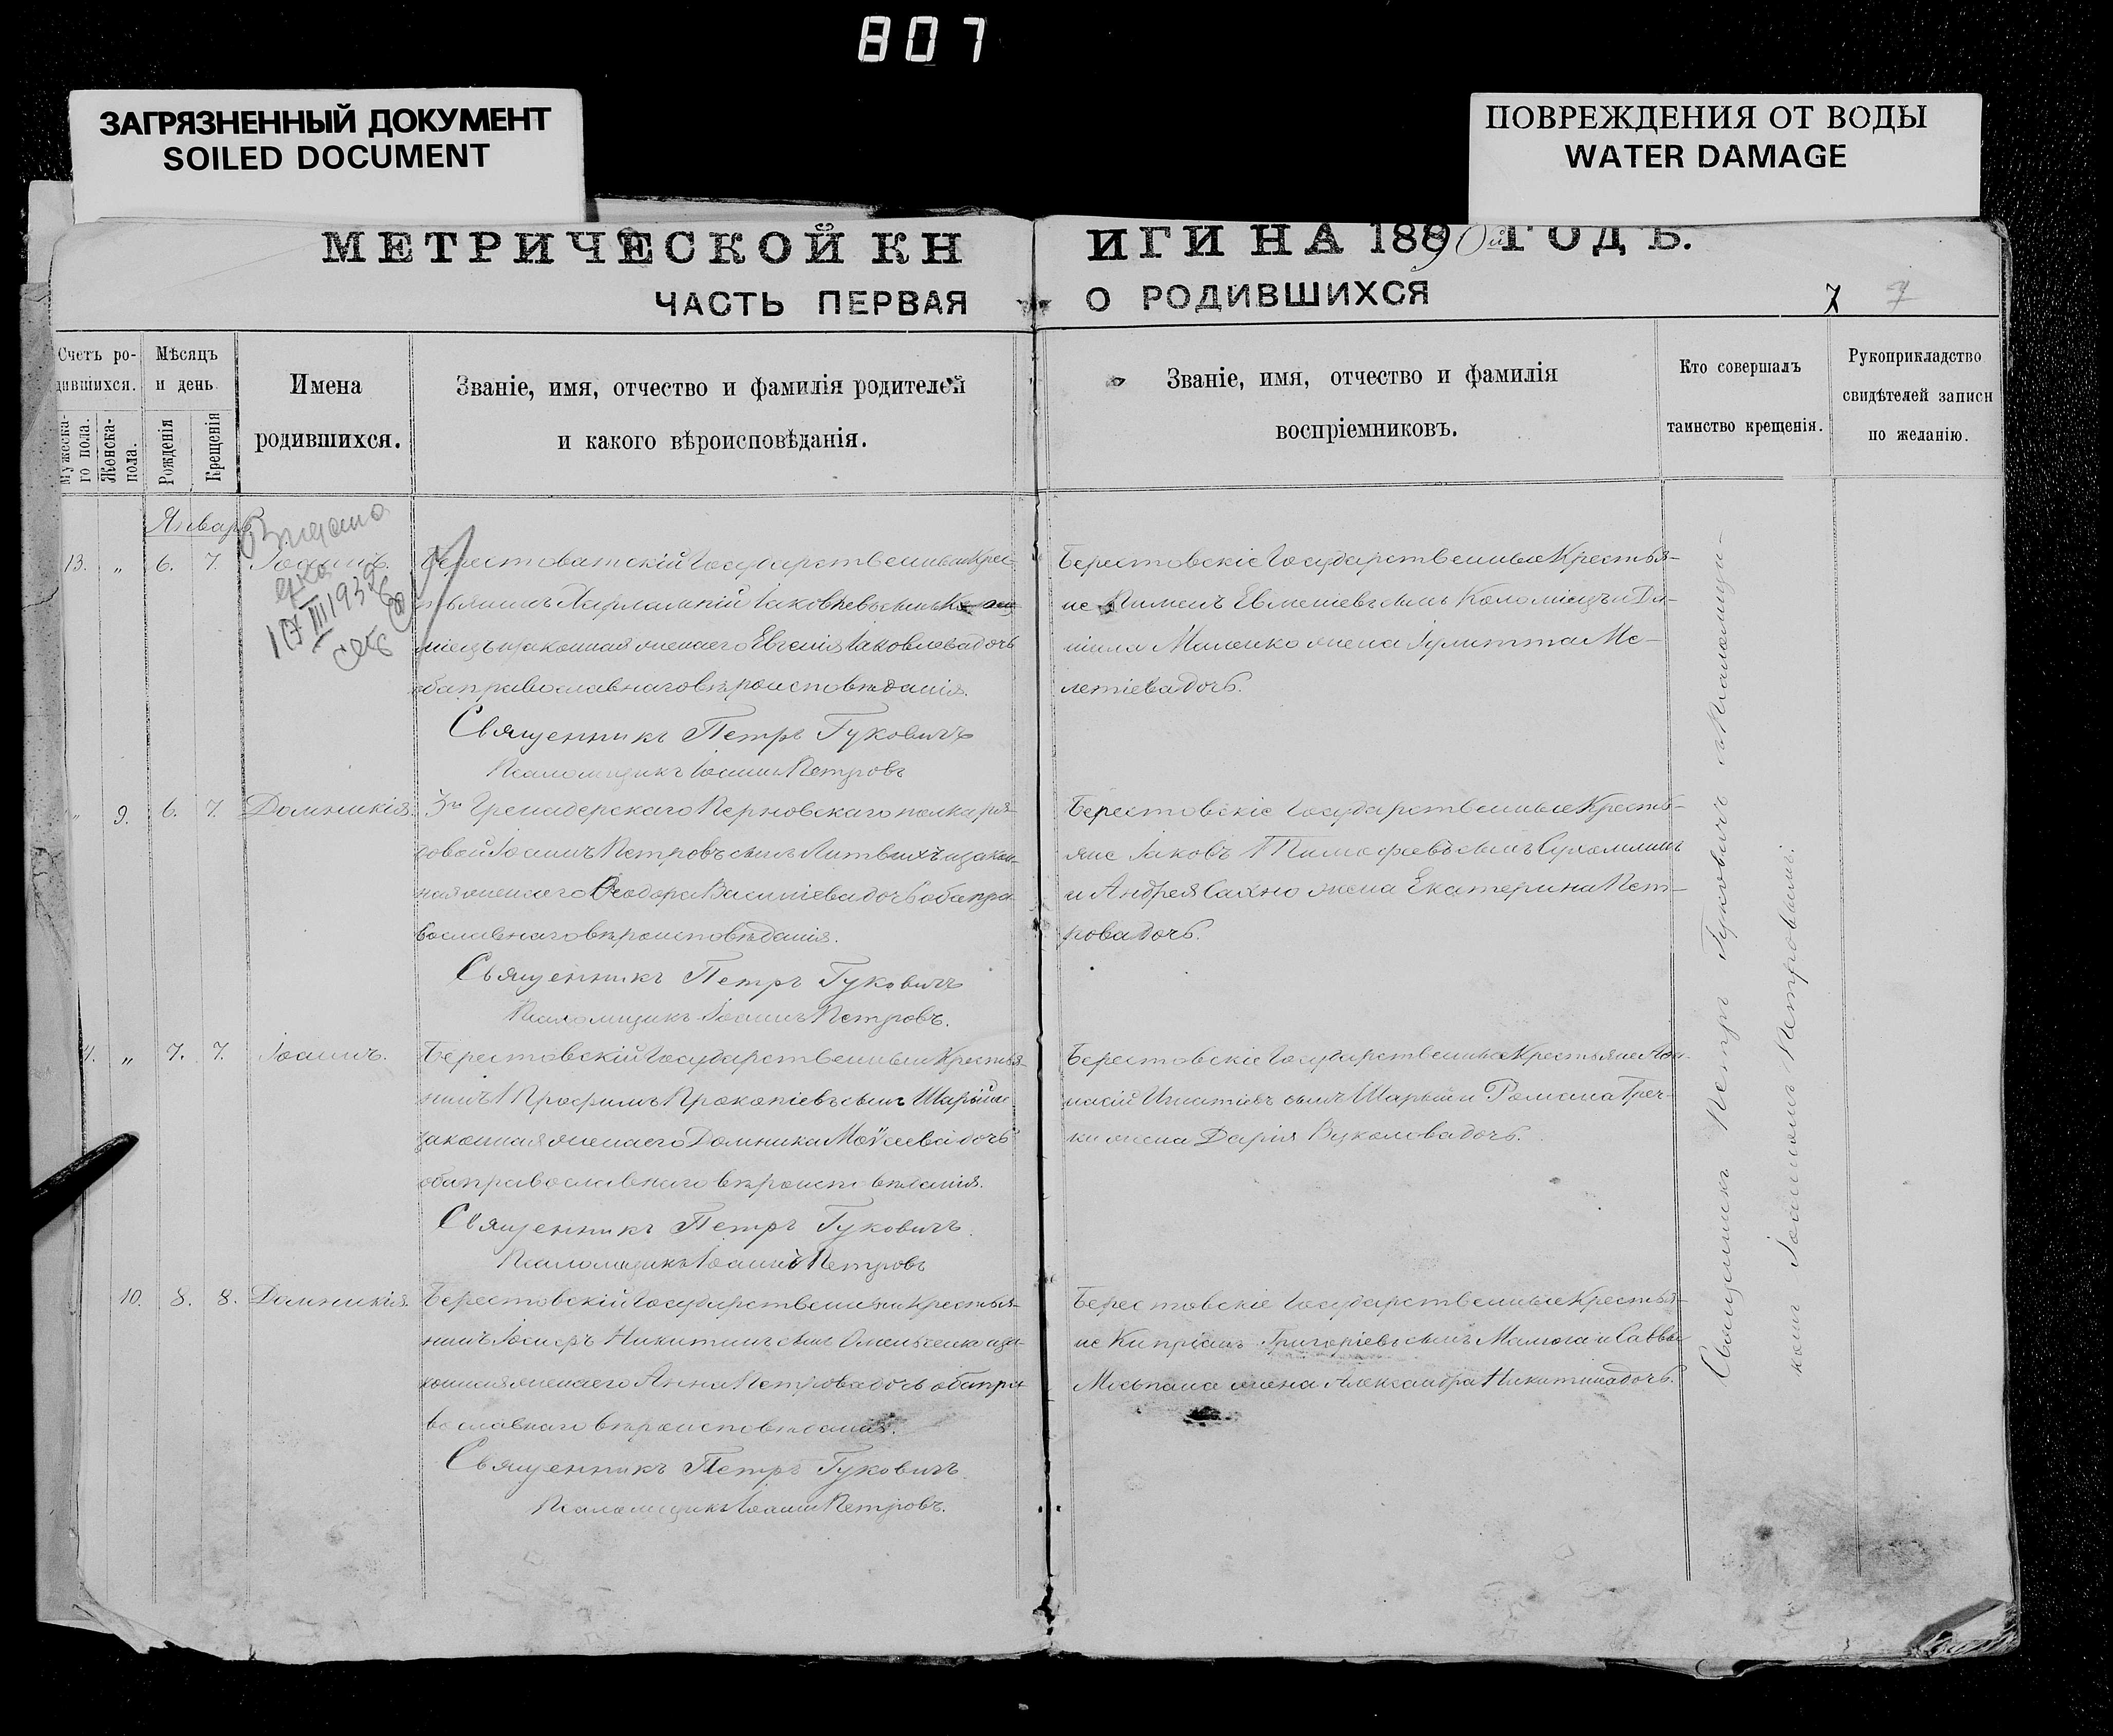 807
ЗАГРЯЗНЕННЫЙ ДОКУМЕНТ
SOILED DOCUMENT
ПОВРЕЖДЕНИЯ ОТ ВОДЫ
WATER DAMAGE
МЕТРИЧЕСКОЙ КНИГИ НА 1890й ГОДЪ.
ЧАСТЬ ПЕРВАЯ О РОДИВШИХСЯ
7 7
Счетъ родившихся.
Мужеска-го пола.
Женска- пола.
Мѣсяцъ и день.
Рожденія
Крещенія
Имена
родившихся.
Званіе, имя, отчество и фамилія родителей
и какого вѣроисповѣданія.
Званіе, имя, отчество и фамилія
воспріемниковъ.
Кто совершалъ
таинство крещенія.
Рукоприкладство
свидѣтелей записи
по желанію.
Январь
13. „ 6. 7. Іоаннъ.
Берестоватскій Государственный Крес-
тьянинъ Іаковлевъ сынъ
міецъ и законная жена его Евгенія Іаковлева дочь
оба православнаго вѣроисповѣданія.
Священникъ Петръ Гуковичъ
Псаломщикъ Іоаннъ Петровъ
Берестовскіе Государственные Крестья-
не Пименъ Евменіевъ сынъ Коломіецъ и Да-
ніила Миленко жена Іулитта Ме-
летіева дочь.
„ 9. 6. 7. Домникія.
3го Гренадерскаго Перновскаго полка ря-
довой Іоаннъ Петровъ сынъ и закон-
ная жена его Ѳеодора Василіева дочь оба пра-
вославнаго вѣроисповѣданія.
Священникъ Петръ Гуковичъ
Псаломщикъ Іоаннъ Петровъ.
Берестовскіе Государственные Кресть-
яне Іаковъ Тимофеевъ сынъ Сухомлинъ
и Андрея Сахно жена Екатерина Пет-
рова дочь.
4. „ 7. 7. Іоаннъ.
Берестовскій Государственный Крестья-
нинъ Трофимъ Прокопіевъ сынъ Шарый и
законная жена его Домника Моѵсеева дочь
оба православнаго вѣроисповѣданія.
Священникъ Петръ Гуковичъ.
Псаломщикъ Іоаннъ Петровъ
Берестовскіе Государственные Крестьяне Аѳа-
насій Игнатіевъ сынъ Шарый и Романа Греч-
ки жена Дарія Вуколова дочь.
10. 8. 8. Домникія.
Берестовскій Государственный Крестья-
нинъ Іосифъ Никитинъ сынъ Омельченко и за-
конная жена его Анна Петрова дочь оба пра-
вославнаго вѣроисповѣданія.
Священникъ Петръ Гуковичъ.
Псаломщикъ Іоаннъ Петровъ.
Берестовскіе Государственные Крестья-
не Кипріанъ Григоріевъ сынъ и Саввы
Мосьпана жена Александра Никитина дочь.
Священникъ Петръ Гуковичъ съ Псаломщи-
комъ Іоанномъ Петровымъ.